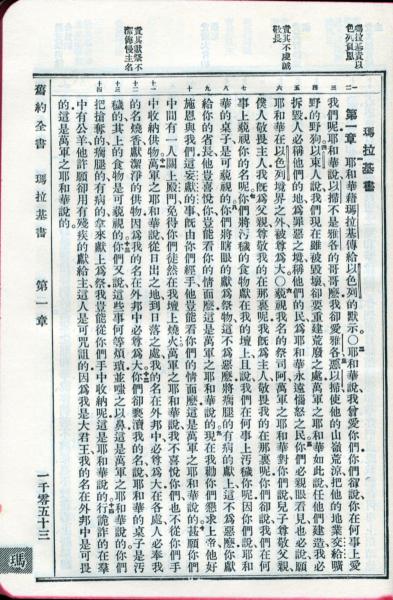 瑪拉基責以
色列負恩
責其不虔誠
敬畏
責其獻祭不
潔侮慢主名
瑪拉基書
第一章 耶和華藉瑪拉基傳給以色列的默示○耶和華說我曾愛你們你們卻說你在何事上愛
我們呢耶和華說以掃不是雅各的哥哥麼我卻愛雅各惡以掃使他的山嶺荒涼把他的地業交給曠
野的野狗以東人說我們現在雖被毀壞卻要重建荒廢之處萬軍之耶和華如此說任他們建造我必
拆毀人必稱他們的地爲罪惡之境稱他們的民爲耶和華永遠惱怒之民你們必親眼看見也必說願
耶和華在以色列境界之外被尊爲大○藐視我名的祭司阿萬軍之耶和華對你們說兒子尊敬父親
僕人敬畏主人我既爲父親尊敬我的在那裏呢我既爲主人敬畏我的在那裏呢你們卻說我們在何
事上藐視你的名呢你們將污穢的食物獻在我的壇上且說我們在何事上污穢你呢因你們說耶和
華的桌子是可藐視的你們將瞎眼的獻爲祭物這不爲惡麼將瘸腿的有病的獻上這不爲惡麼你獻
給你的省長他豈喜悅你豈能看你的情面麼這是萬軍之耶和華說的現在我勸你們懇求上帝他好
施恩與我們這妄獻的事既由你們經手他豈能看你們的情面麼這是萬軍之耶和華說的甚願你們
中間有一人關上殿門免得你們徒然在我壇上燒火萬軍之耶和華說我不喜悅你們也不從你們手
中收納供物萬軍之耶和華說從日出之地到日落之處我的名在外邦中必尊爲大在各處人必奉我
的名燒香獻潔淨的供物因爲我的名在外邦中必尊爲大你們卻褻瀆我的名說耶和華的桌子是污
穢的其上的食物是可藐視的你們又說這些事何等煩瑣並嗤之以鼻這是萬軍之耶和華說的你們
把搶奪的瘸腿的有病的拿來獻上爲祭我豈能從你們手中收納呢這是耶和華說的行詭詐的在羣
中有公羊他許願卻用有殘疾的獻給主這人是可咒詛的因爲我是大君王我的名在外邦中是可畏
的這是萬軍之耶和華說的
舊約全書 瑪拉基書 第一章 一千零五十三
瑪